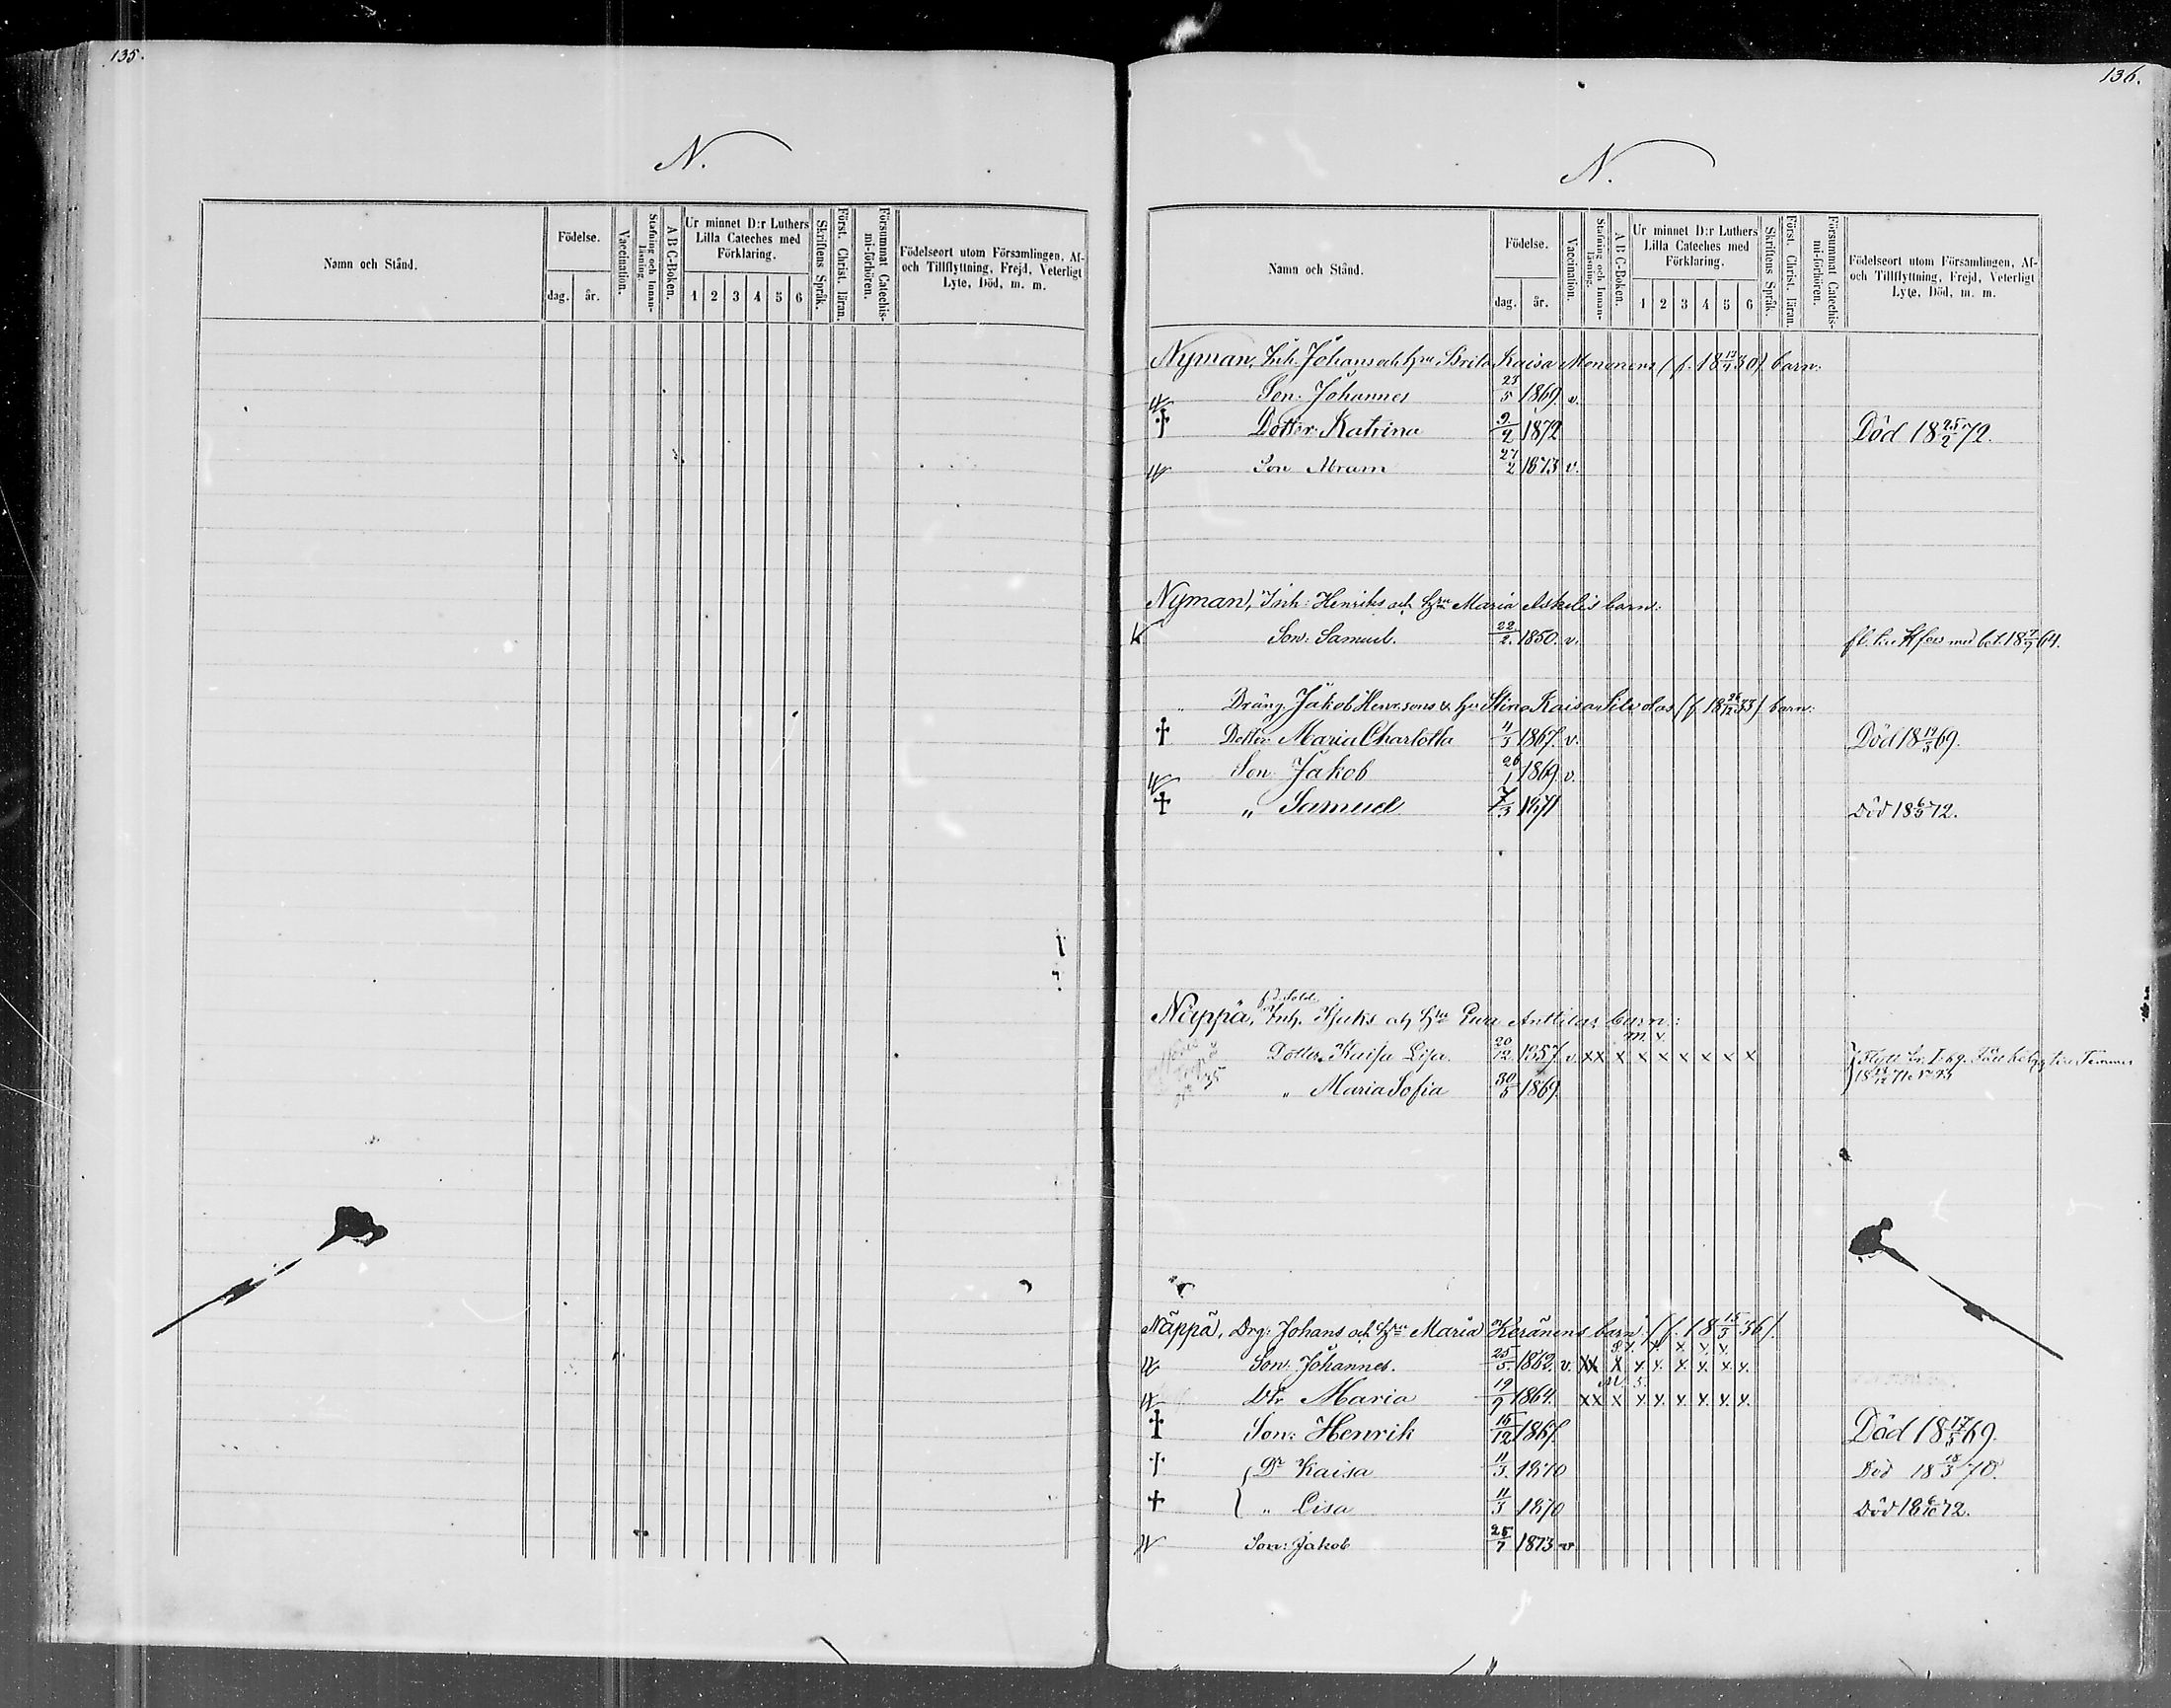 135.
N.
Namn och Stånd.
Födelse.
dag.
år.
Vaccination.
Stafning och Innan-läsning.
A B C-Boken.
Ur minnet D:r Luthers
Lilla Cateches med
Förklaring.
1 2 3 4 5 6
Skriftens Språk.
Först. Christ. läran.
Försummat Catechis-mi-förhören.
Födelseort utom Församlingen, Af-
och Tillflyttning, Frejd, Veterligt
Lyte, Död, m. m.
136.
N.
Namn och Stånd.
Födelse.
dag.
år.
Vaccination.
Stafning och Innan-läsning.
A B C-Boken.
Ur minnet D:r Luthers
Lilla Cateches med
Förklaring.
1 2 3 4 5 6
Skriftens Språk.
Först. Christ. läran.
Försummat Catechis-mi-förhören.
Födelseort utom Församlingen, Af-
och Tillflyttning, Frejd, Veterligt
Lyte, Död, m. m.
Nyman, Inh. Johans och Hru Brita Kaisa Mononens (f. 18 30) barn:
Son Johannes 23/5 1869. v.
† Dotter Katrina 9/2 1872 Död 18 25/2 72.
Son Abram 27/2 1873 v.
Nyman, Inh: Henriks och Hru Maria Askelis barn:
k Son: Samuel. 22/2. 1850. v. med bet. 18 7/9 64.
" Dräng Jakob Henr.sons & Hru Stina Kaisa (f. 18 26/12 33) barn:
† Dotter Maria Charlotta 4/3 1867. v. Död 18 69.
Son Jakob 26/1 1869. v.
† „ Samuel 7/3 1871 Död 18 6/5 72.
fd. Sold.
Näppä, Inh. och Hru Ewa Anttilas barn:
m. v.
Dotter Kaisa Lisa. 20/12. 1857. v. x x x x x x x x x
18 71
„ Maria Sofia 30/5 1869.
Näppä, Drg: Johans och Hru Maria Keränens barn: (f. 18 15/3 36).
Son: Johannes. 25/5. 1862. v. x x x x. x. x x x. x.
Dtr Maria 19/9 1864. x x x x. x. x. x. x. x.
† Son: Henrik 16/12 1867. Död 18 17/5 69.
† Dr Kaisa 11/3. 1870 Död 18 18/3 70.
† „ Lisa 11/3 1870 Död 18 6/10 72.
Son: Jakob 25/7 1873 v